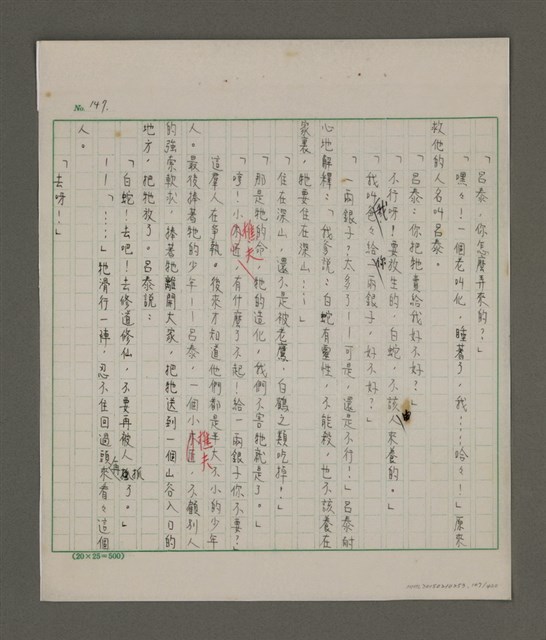 No. 147.
「呂泰，你怎麼弄來的？」
「嘿々！一個老叫化，睡著了，我……哈々！」原來
救他的人名叫呂泰。
「呂泰：你把牠賣給我好不好？」
「不行呀！要放生的，白蛇，不該人來養的。」
「我叫我爸々給你一兩銀子，好不好？」
「一兩銀子？太多了——可是，還是不行！」呂泰耐
心地解釋：「我爹說：白蛇有靈性，不能殺，也不該養在
家裏，牠要住在深山……」
「住在深山，還不是被老鷹，白鶴之類吃掉！」
「那是牠的命，牠的造化，我們不害牠就是了。」
「哼！小樵夫，有什麼了不起！給一兩銀子你不要？」
這羣人在爭執。後來才知道他們都是半大不小的少年
人。最後捧著牠的少年——呂泰，一個小樵夫，不顧別人
的強索軟求，捧著牠離開大家，把牠送到一個山谷入口的
地方，把牠放了。呂泰說：
「白蛇！去吧！去修道修仙，不要再被人抓了。」
——「……」牠滑行一陣，忍不住回過頭來再看々這個
人。
「去呀！」
(20×25=500)